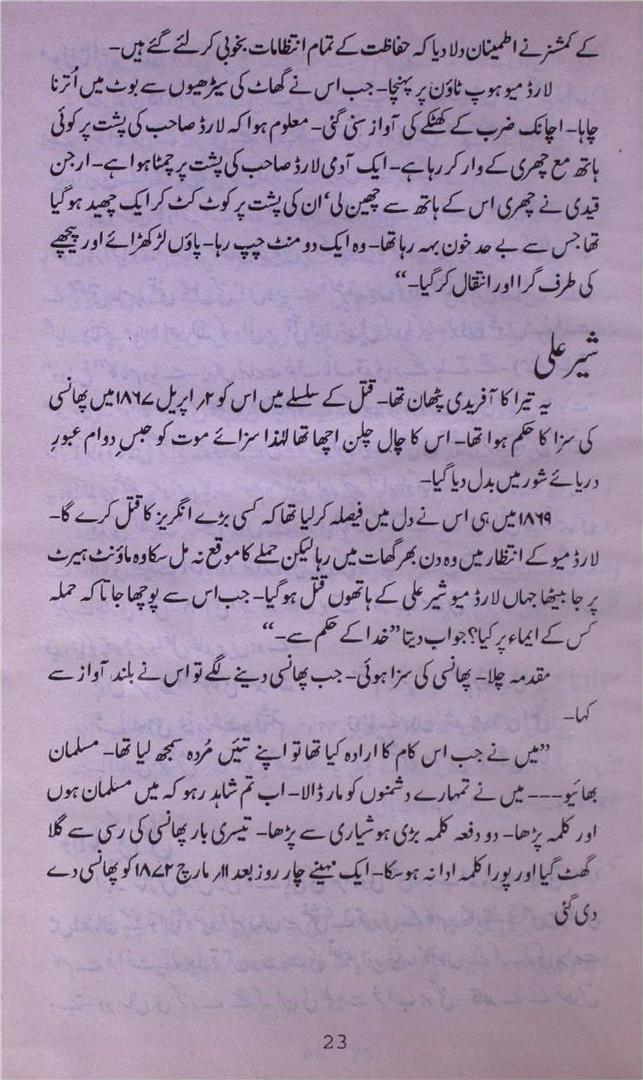 کے کمشنر نے اطمینان دلا دیا کہ حفاظت کے تمام انتظامات بخوبی کر لئے گئے ہیں۔
لارڈ میو ہوپ ٹاؤن پر پہنچا۔ جب اس نے گھاٹ کی سیڑھیوں سے بوٹ میں اُترنا
چاہا۔ اچانک ضرب کے کھٹکے کی آواز سنی گئی۔ معلوم ہوا کہ لارڈ صاحب کی پشت پر کوئی
ہاتھ مع چھری کے وار کر رہا ہے۔ ایک آدمی لارڈ صاحب کی پشت پر چمٹا ہوا ہے۔ ارجن
قیدی نے چھری اس کے ہاتھ سے چھین لی‘ ان کی پشت پر کوٹ کٹ کر ایک چھید ہو گیا
تھا جس سے بے حد خون بہہ رہا تھا۔ وہ ایک دو منٹ چپ رہا۔ پاؤں لڑکھڑائے اور پیچھے
کی طرف گرا اور انتقال کر گیا۔“
شیر علی
یہ تیرا کا آفریدی پٹھان تھا۔ قتل کے سلسلے میں اس کو ۲؍ اپریل ۱۸۶۷ میں پھانسی
کی سزا کا حکم ہوا تھا۔ اس کا چال چلن اچھا تھا لہٰذا سزائے موت کو حبسِ دوام عبورِ
دریائے شور میں بدل دیا گیا۔
۱۸۶۹ میں ہی اس نے دل میں فیصلہ کر لیا تھا کہ کسی بڑے انگریز کا قتل کرے گا۔
لارڈ میو کے انتظار میں وہ دن بھر گھات میں رہا لیکن حملے کا موقع نہ مل سکا وہ ماؤنٹ ہیرٹ
پر جا بیٹھا جہاں لارڈ میو شیر علی کے ہاتھوں قتل ہو گیا۔ جب اس سے پوچھا جاتا کہ حملہ
کس کے ایماء پر کیا؟ جواب دیتا ”خدا کے حکم سے۔“
مقدمہ چلا۔ پھانسی کی سزا ہوئی۔ جب پھانسی دینے لگے تو اس نے بلند آواز سے
کہا۔
”میں نے جب اس کام کا ارادہ کیا تھا تو اپنے تئیں مُردہ سمجھ لیا تھا۔ مسلمان
بھائیو۔۔۔ میں نے تمہارے دشمنوں کو مار ڈالا۔ اب تم شاہد رہو کہ میں مسلمان ہوں
اور کلمہ پڑھا۔ دو دفعہ کلمہ بڑی ہوشیاری سے پڑھا۔ تیسری بار پھانسی کی رسی سے گلا
گھٹ گیا اور پورا کلمہ ادا نہ ہو سکا۔ ایک مہینے چار روز بعد ۱۱؍ مارچ ۱۸۷۲ کو پھانسی دے
دی گئی۔
23